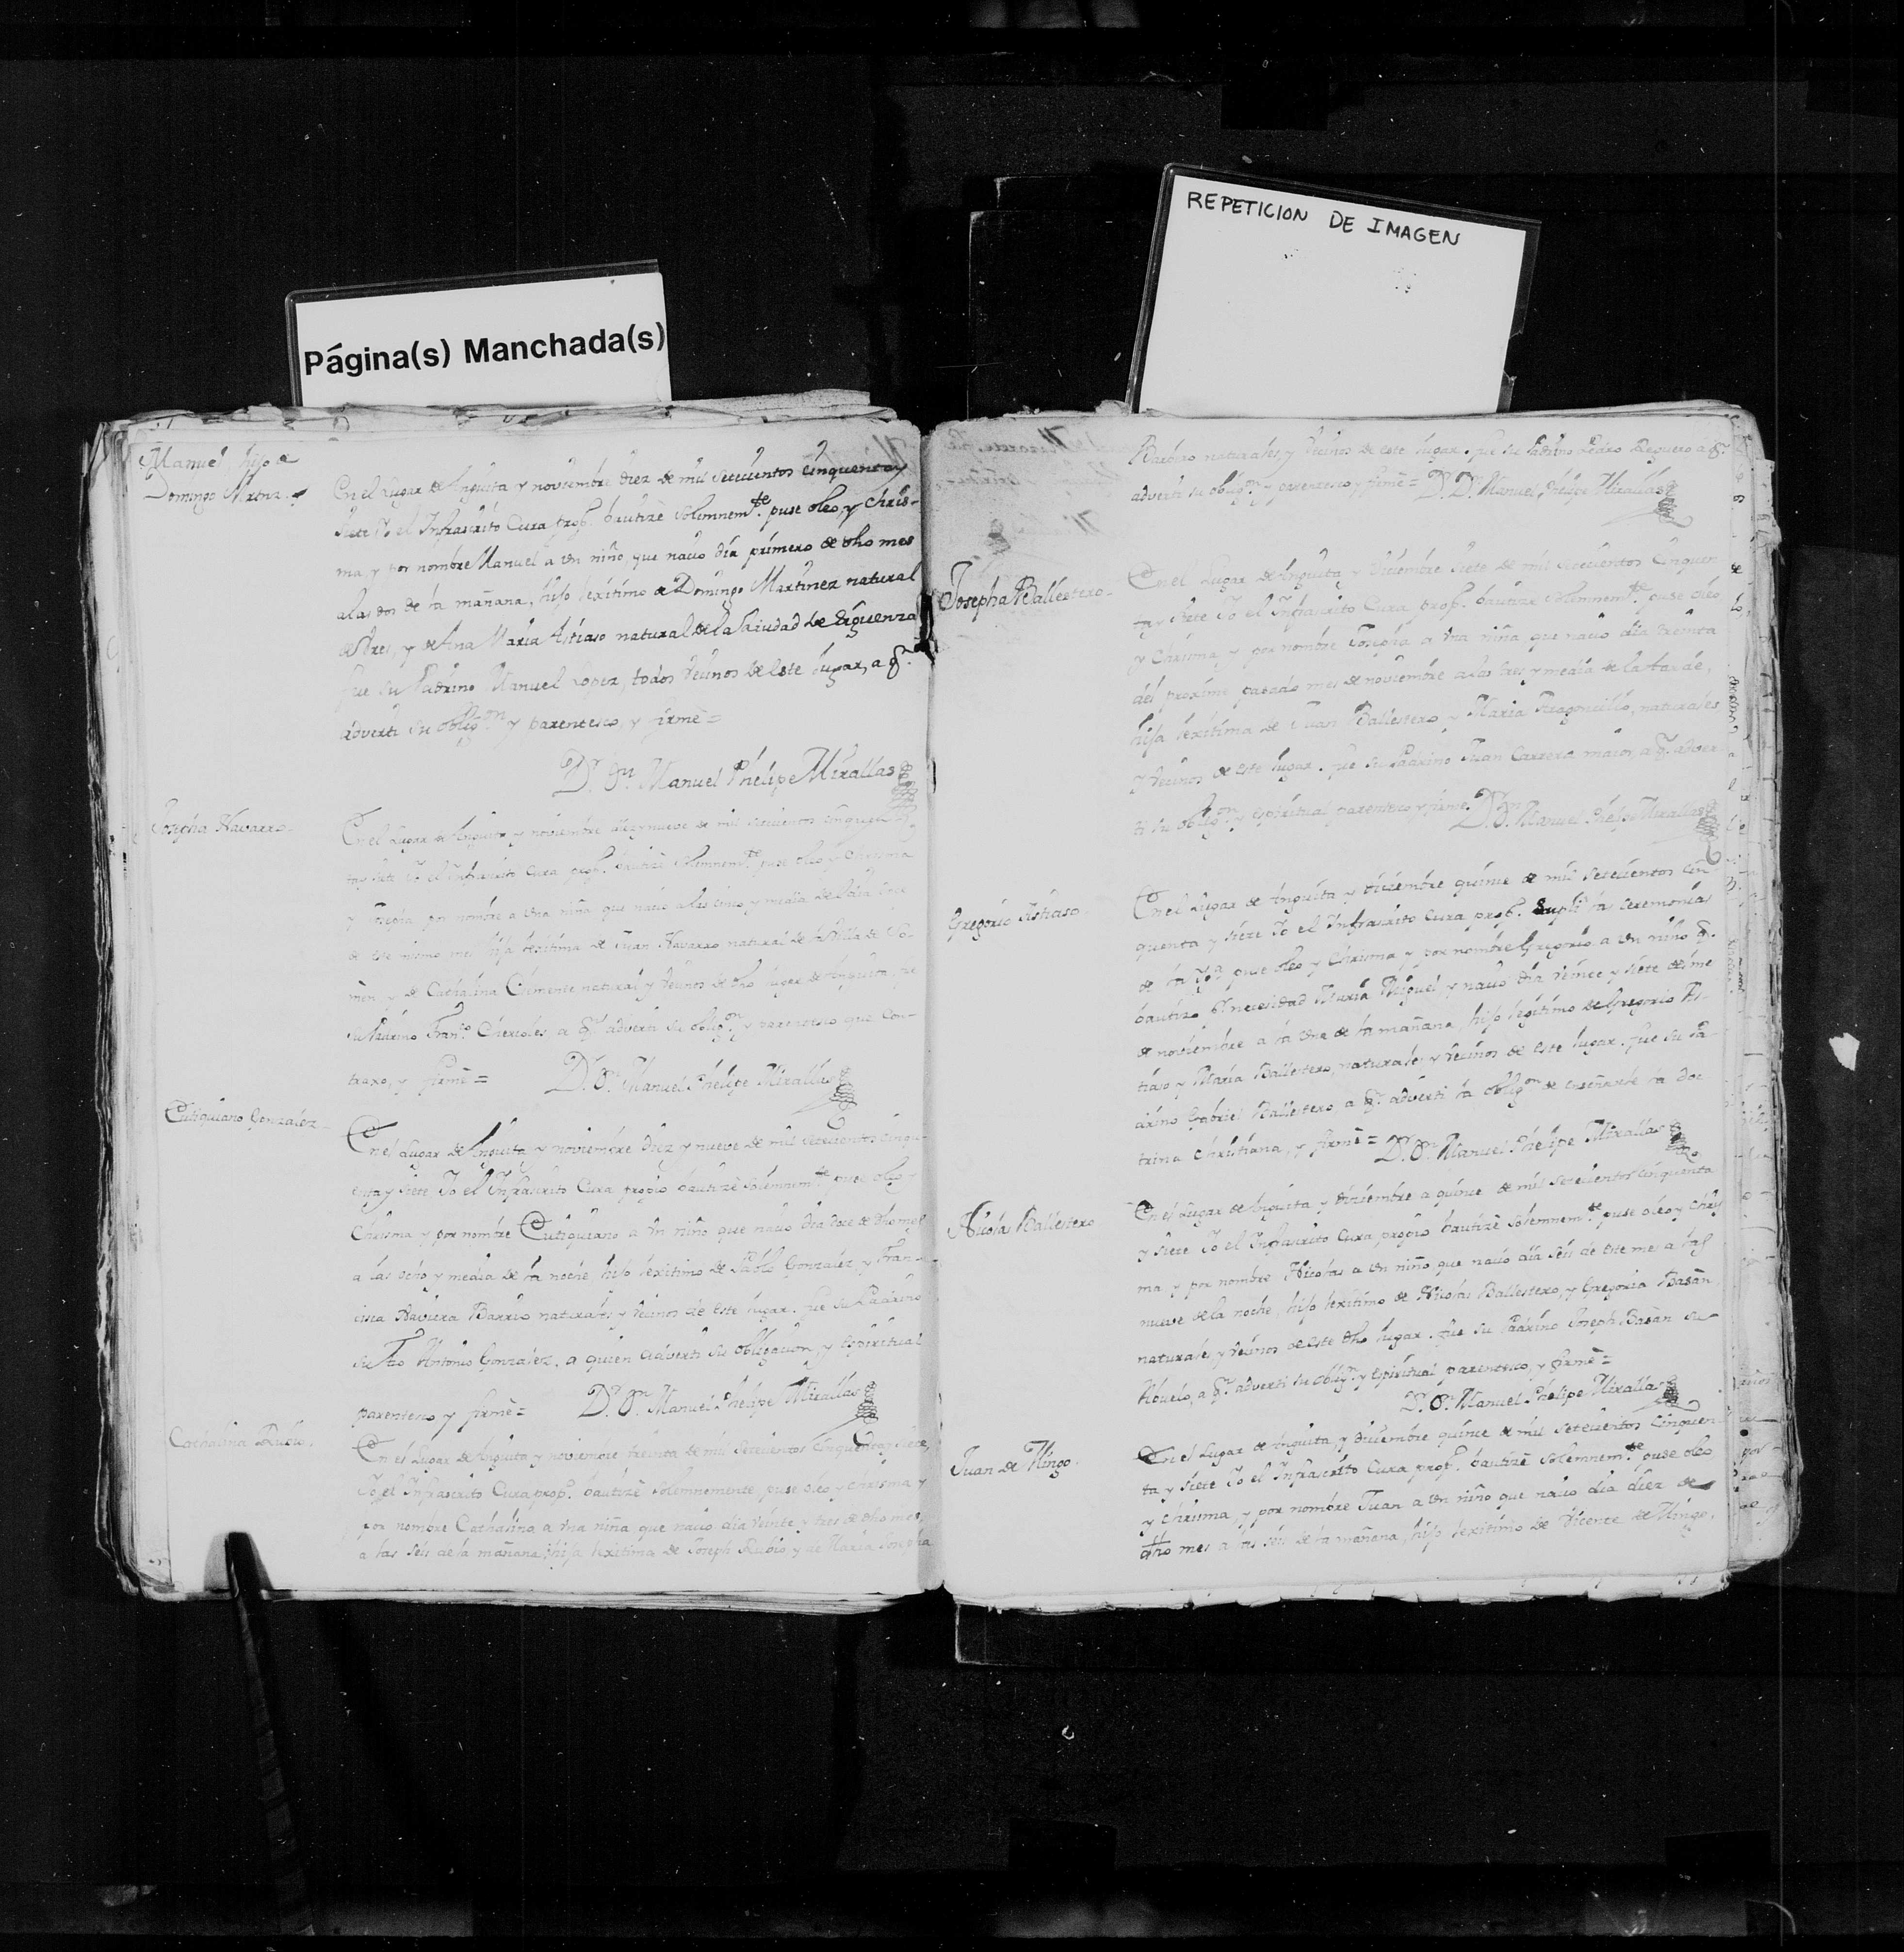 Página(s) Manchada(s)
REPETICION DE IMAGEN
Manuel hijo de
Domingo Mrnz.
En el Lugar de Anguita y noviembre diez de mil setecientos cinquenta y
siete Yo el Infrascrito Cura prop.º bautizè solemnem.te puse oleo, y Chris-
ma, y por nombre Manuel a un niño, que nacio dia primero de dho mes
a las dos de la mañana, hijo lexitimo de Domingo Martinez natural
de Bres, y de Ana Maria Astiaso natural de la Ciudad de Siguenza
fue su Padrino Manuel Lopez, todos vecinos de este lugar, a q.n
adverti su oblig.on y parentesco, y firmè =
D.r D.n Manuel Phelipe Mirallas
Josepha Navarro
En el Lugar de Anguita y noviembre diez y nueve de mil setecientos cinquen
ta y siete Yo el Infrascrito Cura prop.º bautizè solemnem.te puse oleo y Chrisma
y Josepha por nombre a una niña que nacio a las cinco y media de el dia
de este mismo mes hija lexitima de Juan Navarro natural de la Villa de
y de Cathalina Clemente natural y vecinos de dho lugar de Anguita, fue
su Padrino Fran.co Chercoles, a q.n adverti su oblig.on y parentesco que con-
traxo, y firmè = D.r D.n Manuel Phelipe Mirallas
Cutiquiano Gonzalez
En el Lugar de Anguita y noviembre diez y nueve de mil setecientos cinqu-
enta y siete Yo el Infrascrito Cura propio bautizè solemnem.te puse oleo y
Chrisma y por nombre Cutiquiano a un niño que nacio dia doze de dho mes
a las ocho y media de la noche hijo lexitimo de Pablo Gonzalez y Fran-
cisca Xaviera Barrio naturales y vecinos de este lugar. fue su Padrino
su tio Antonio Gonzalez, a quien adverti su obligacion, y espiritual
parentesco y firmè = D.r D.n Manuel Phelipe Mirallas
Cathalina Rubio
En el Lugar de Anguita y noviembre treinta de mil setecientos cinquenta y siete,
Yo el Infrascrito Cura prop.º bautizè solemnemente, puse oleo y Chrisma y
por nombre Cathalina a una niña que nacio dia veinte y tres de dho mes,
a las seis de la mañana, hija lexitima de Joseph Rubio y de Maria Josepha
naturales, y vecinos de este lugar. fue su Padrino Pedro Reguero a q.n
adverti su oblig.on y parentesco y firmè = D.r D.n Manuel Phelipe Mirallas
Josepha Ballestero
En el Lugar de Anguita y Diciembre siete de mil setecientos cinquen
ta y siete Yo el Infrascrito Cura prop.º bautizè solemnem.te puse oleo
y Chrisma, y por nombre Josepha a una niña que nacio dia treinta
del proximo pasado mes de noviembre a las tres y media de la tarde,
hija lexitima de Juan Ballestero y Maria Aragoncillo, naturales
y vecinos de este lugar. fue su Padrino Juan Carrera maior, a q.n adver-
ti su oblig.on y espiritual parentesco y firmè D.r D.n Manuel Phelipe Mirallas
Gregorio Astiaso
En el Lugar de Anguita y diciembre quince de mil setecientos cin
quenta y siete Yo el Infrascrito Cura prop.º supli las seremonias
de la Ygª puse oleo y Chrisma y por nombre Gregorio a un niño q.e
bautizo p.r necesidad Maria Miguel y nacio dia veinte y siete del mes
de noviembre a la una de la mañana hijo legitimo de Gregorio As-
tiaso y Maria Ballestero, naturales y vecinos de este lugar. fue su Pa
drino Gabriel Ballestero, a q.n adverti la oblig.on de enseñarle la doc
trina Christiana, y firmè = D.r D.n Manuel Phelipe Mirallas
Nicolas Ballestero
En el Lugar de Anguita y Diciembre a quince de mil setecientos cinquenta
y siete Yo el Infrascrito Cura propio bautizè solemnem.te puse oleo y Chris
ma y por nombre Nicolas a un niño que nacio dia seis de este mes a las
nueve de la noche, hijo lexitimo de Nicolas Ballestero, y Gregoria Basàn
naturales y vecinos de este dho lugar. fue su Padrino Joseph Basàn su
Abuelo, a q.n adverti su oblig.n y espiritual parentesco, y firmè =
D.r D.n Manuel Phelipe Mirallas
Juan de Mingo
En el Lugar de Anguita, y diciembre quince de mil setecientos cinquen
ta y siete Yo el Infrascrito Cura prop.º bautizè solemnem.te puse oleo
y Chrisma, y por nombre Juan a un niño que nacio dia diez de
dho mes a las seis de la mañana, hijo lexitimo de Vicente de Mingo,